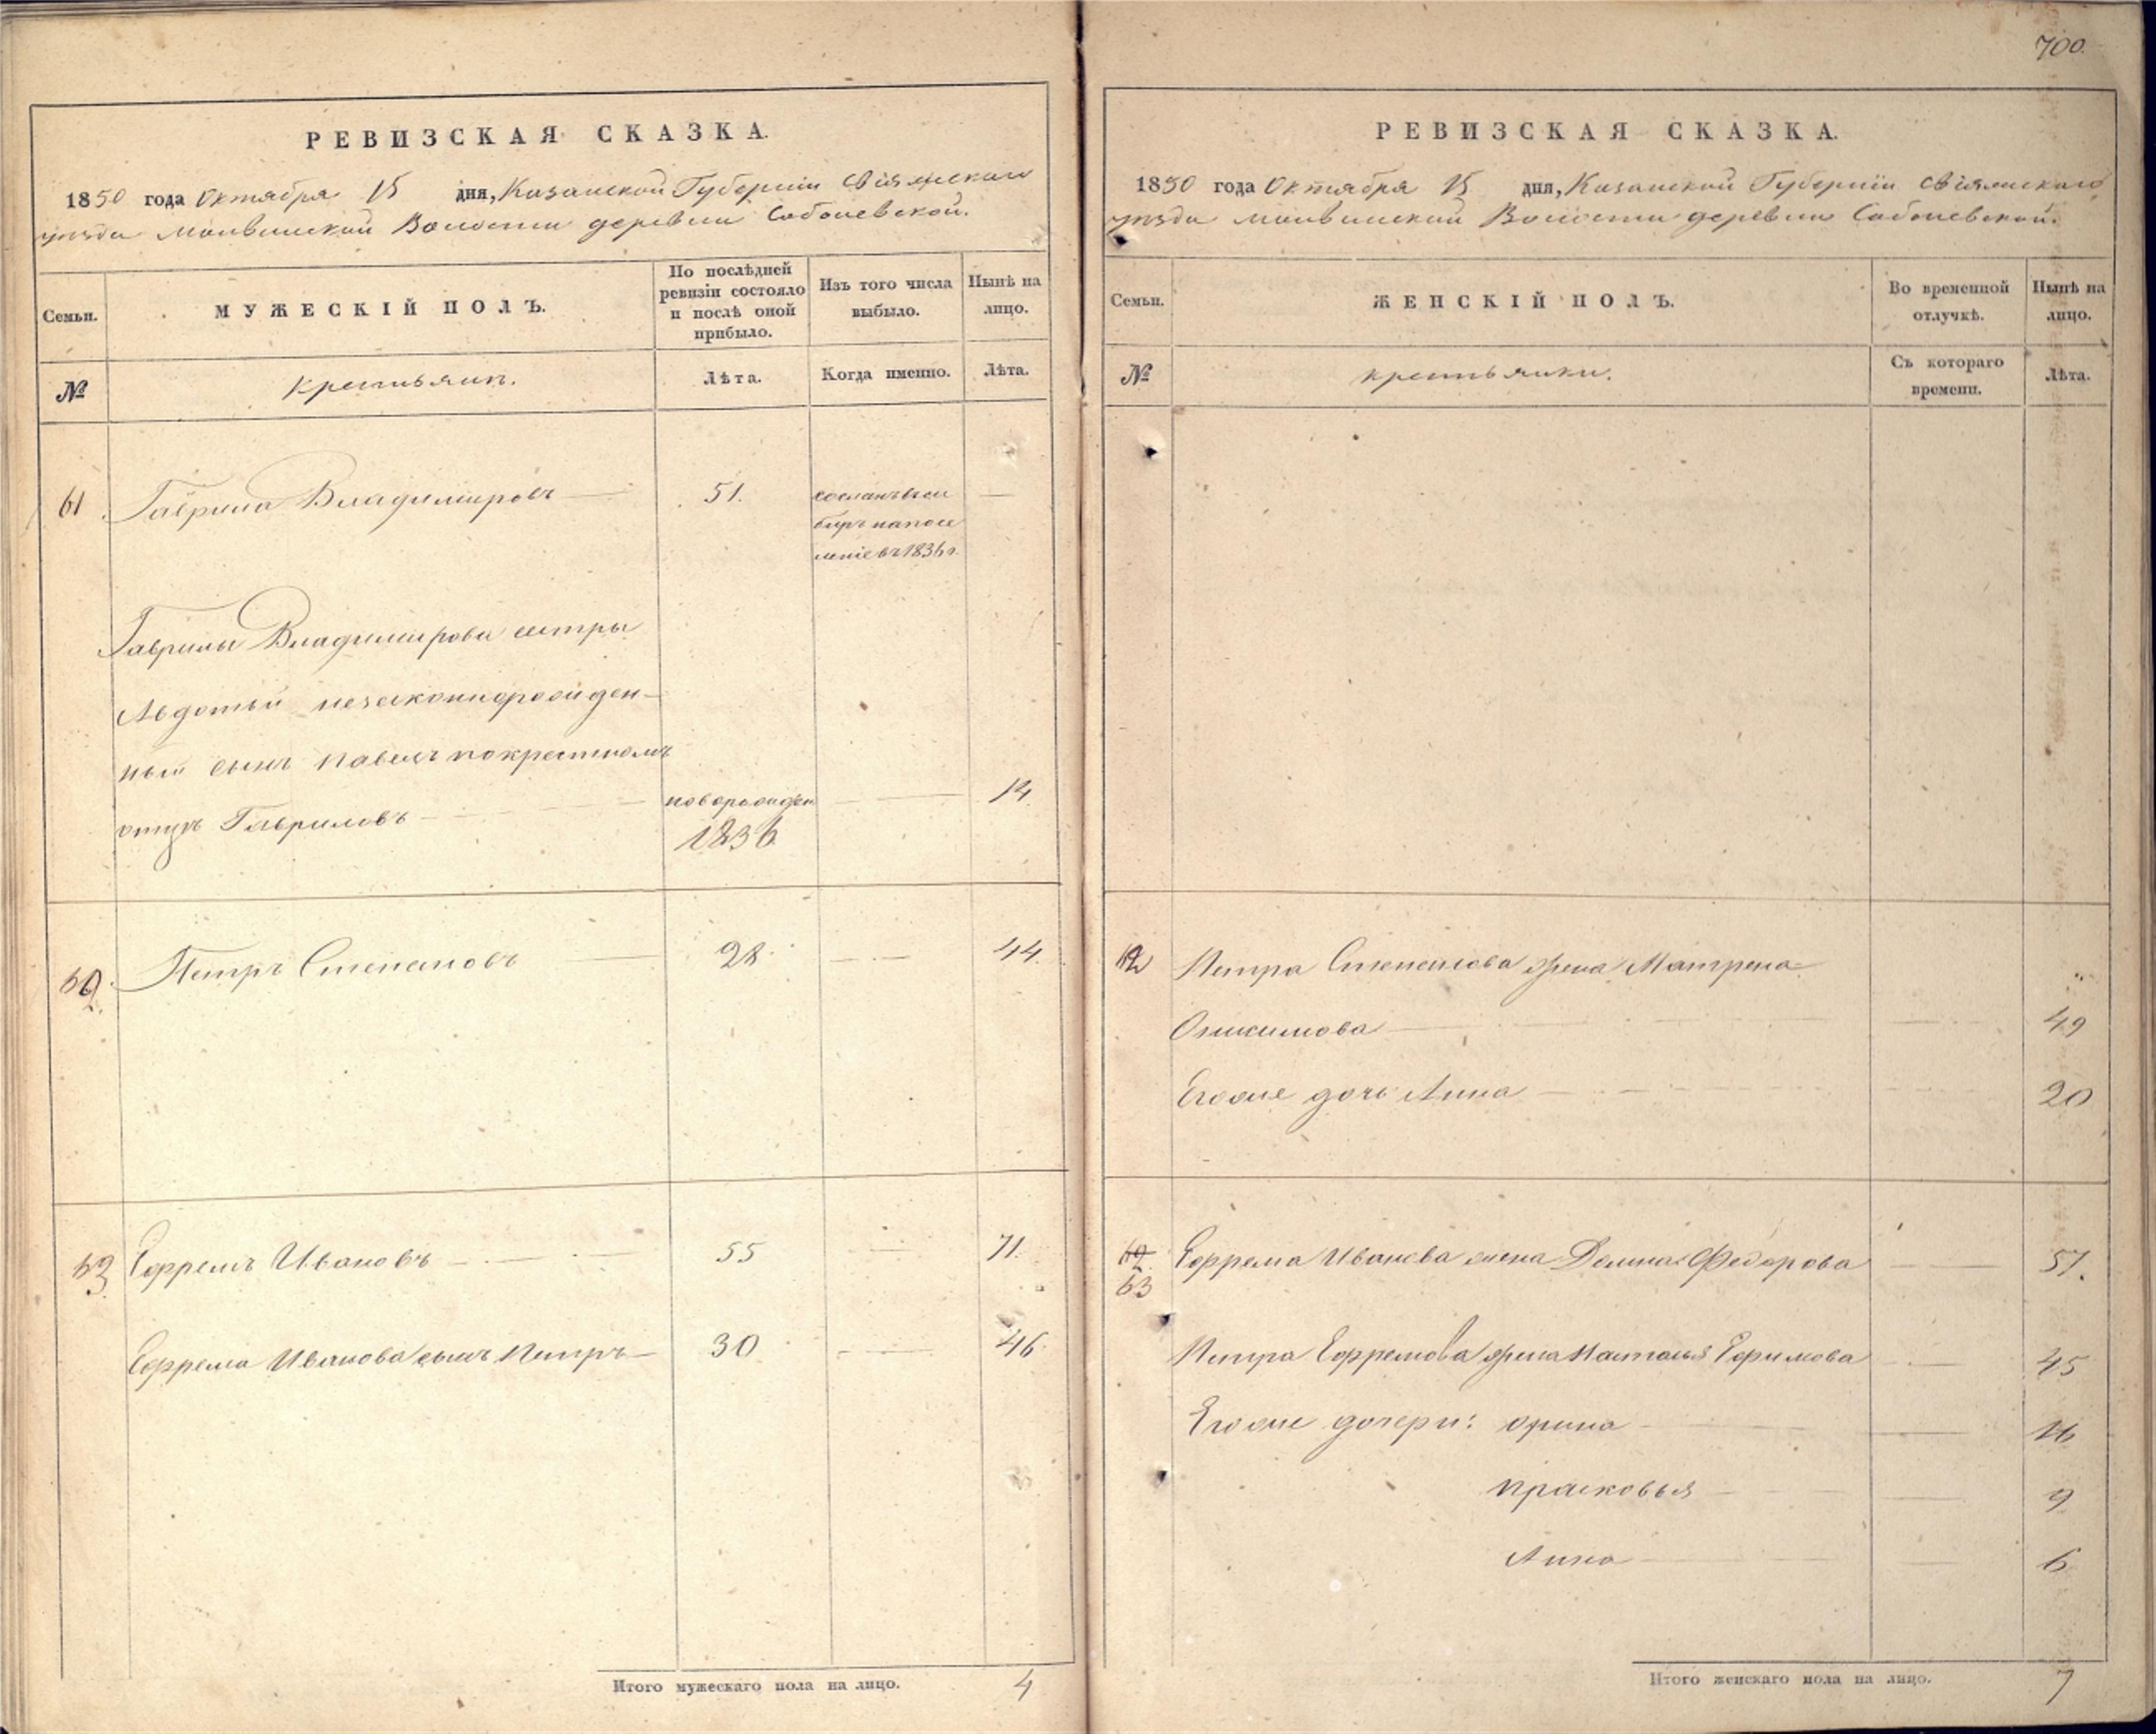 700.
РЕВИЗСКАЯ СКАЗКА.
1850 года Октября 15 дня, Казанской Губернiи Свiяжскаго
уѣзда Волости деревни Соболевской.
Семьи.
МУЖЕСКІЙ ПОЛЪ.
По послѣдней ревизіи состояло и послѣ оной прибыло.
Изъ того числа выбыло.
Нынѣ на лицо.
№
крестьяне.
Лѣта.
Когда именно.
Лѣта.
61 Гаврила Владимировъ 51. сосланъ въ си
биръ на посе
леніе въ 1836 г.
Гаврилы Владимирова сестры
Авдотьи незаконнорожден-
ный сынъ Павелъ по крестномъ
отцѣ Гавриловъ новорожден 14.
1836
62. Петръ Степановъ 28. 44.
63. Ефремъ Ивановъ 55 71.
Ефрема Иванова сынъ Петръ 30 46
Итого мужескаго пола на лицо. 4
РЕВИЗСКАЯ СКАЗКА.
1850 года Октября 15 дня, Казанской Губернiи Свiяжскаго
уѣзда Волости деревни Соболевской.
Семьи.
ЖЕНСКІЙ ПОЛЪ.
Во временной отлучкѣ.
Нынѣ на лицо.
№
крестьянки.
Съ котораго времени.
Лѣта.
62 Петра Степанова жена Матрена
49
Егоже дочь Анна 20
63 Ефрема Иванова жена Домна Федорова 57.
Петра Ефремова жена Наталья Ефимова 45
Егоже дочери: Орина 16
Прасковья 9
Анна 6
Итого женскаго пола на лицо. 7